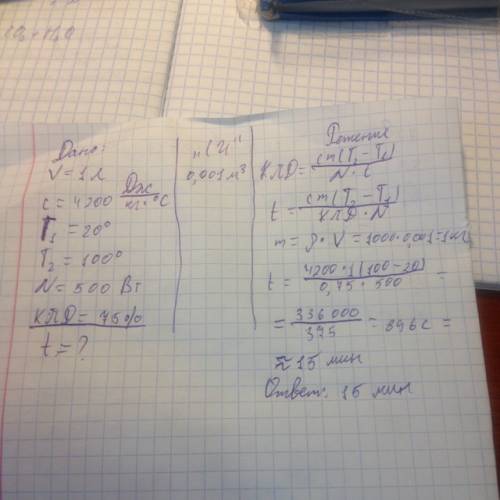 Дано:
V=1л
c=4200 Дж/кг·°C
T₁=20°
T₂=100°
N=500 Вт
КПД=75%
t=?
"СИ"
0,001м³
Решение
КПД=cm(T₂-T₁)/N·t
t=cm(T₂-T₁)/КПД·N
m=ρ·V=1000·0,001=1кг
t=4200·1(100-20)/0,75·500=
=336000/375=896с=
≈15 мин
Ответ: 15 мин